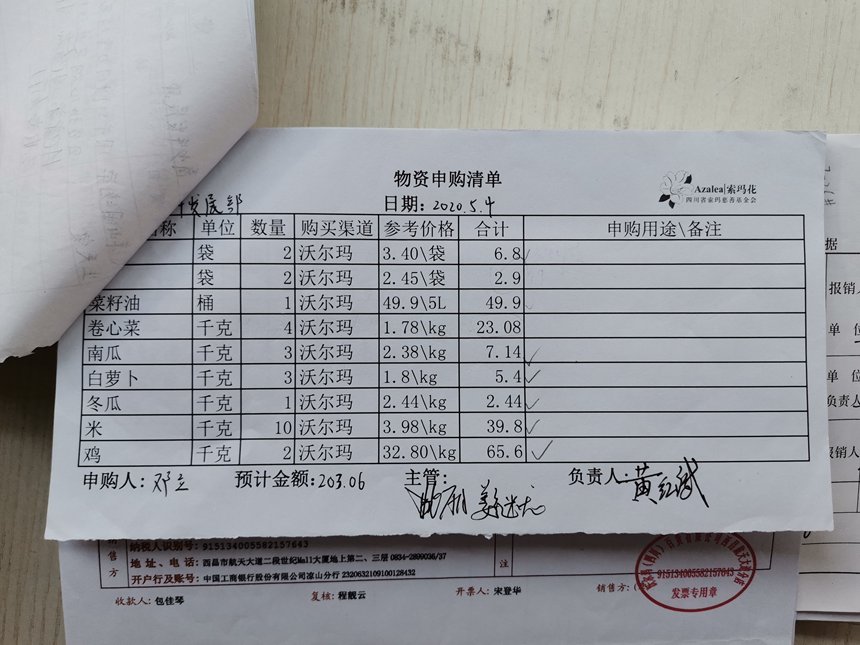 物资申购清单
Azalea|索玛花
四川省索玛慈善基金会
发展部 日期：2020.5.4
称 单位 数量 购买渠道 参考价格 合计 申购用途\备注
袋 2 沃尔玛 3.40\袋 6.8
袋 2 沃尔玛 2.45\袋 2.9
菜籽油 桶 1 沃尔玛 49.9\5L 49.9
卷心菜 千克 4 沃尔玛 1.78\kg 23.08
南瓜 千克 3 沃尔玛 2.38\kg 7.14
白萝卜 千克 3 沃尔玛 1.8\kg 5.4
冬瓜 千克 1 沃尔玛 2.44\kg 2.44
米 千克 10 沃尔玛 3.98\kg 39.8
鸡 千克 2 沃尔玛 32.80\kg 65.6
申购人：邓立 预计金额：203.06 主管： 负责人：黄红斌
据
报销人
单 位
单 位
负责人
报销人
销售方
纳税人识别号：915134005582157643
地 址、电 话：西昌市航天大道二段世纪Mall大厦地上第二、三层 0834-2899036/37
开户行及账号：中国工商银行股份有限公司凉山分行 2320632109100128432
注
收款人：包佳琴 复核：程靓云 开票人：宋登华 销售方：(
915134005582157643
发票专用章